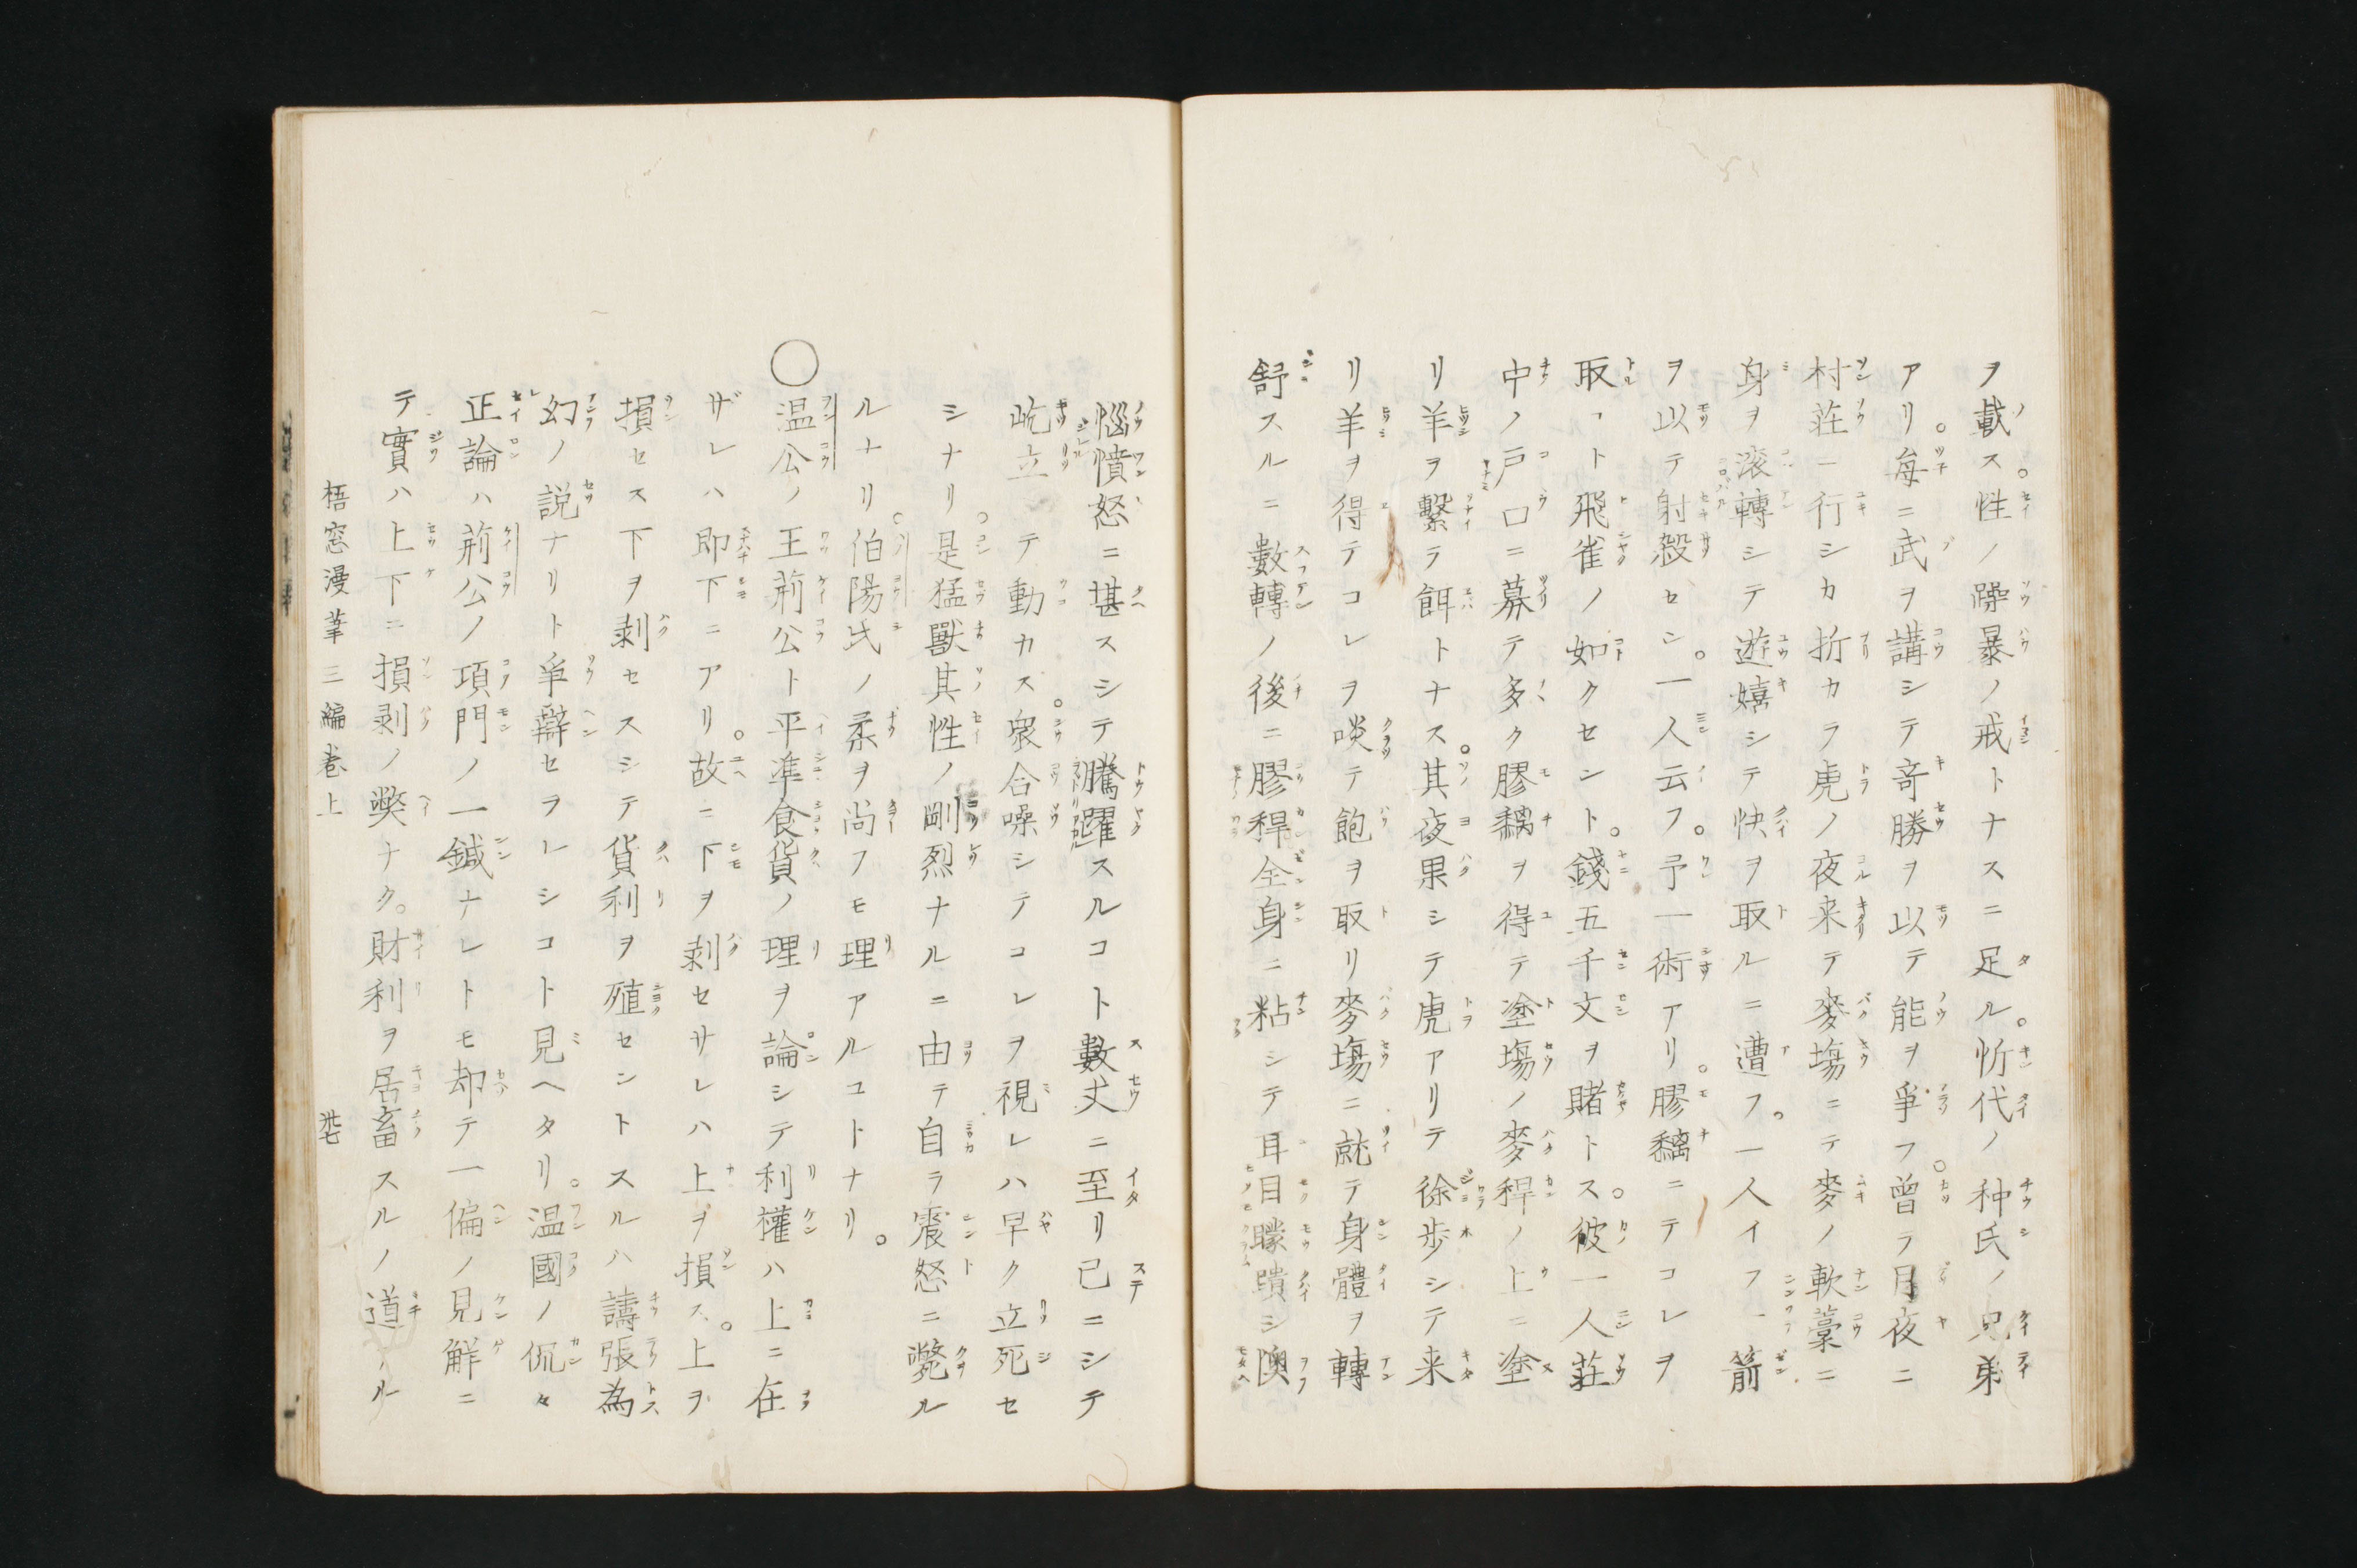 ヲ載ス。性ノ躁暴ノ戒トナスニ足ル。忻代ノ种氏ノ兄弟
アリ。毎ニ武ヲ講シテ奇勝ヲ以テ能ヲ爭フ。曾テ月夜ニ
村荘ニ行シカ折カラ虎ノ夜来テ麥塲ニテ麥ノ軟藁ニ
身ヲ滚轉シテ遊嬉シテ快ヲ取ルニ遭フ。一人イフ一箭
ヲ以テ射殺セシ。一人云フ。予一術アリ。膠黐ニテコレヲ
取ヿト飛雀ノ如クセント。錢五千文ヲ賭トス。彼一人荘
中ノ戸口ニ募テ多ク膠黐ヲ得テ塗塲ノ麥稈ノ上ニ塗
リ羊ヲ繫ラ餌トナス。其夜果シテ虎アリテ徐歩シテ来
リ羊ヲ得テコレヲ啖テ飽ヲ取リ麥塲ニ就テ身體ヲ轉
舒スルニ數轉ノ後ニ膠稈全身ニ粘シテ耳目矇瞶シ懊
惱憤怒ニ堪スシテ騰躍スルコト數丈ニ至リ已ニシテ
屹立テ動カス。衆合噪シテコレヲ視レハ早ク立死セ
シナリ。是猛獸其性ノ剛烈ナルニ由テ自ラ震怒ニ斃ル
ルナリ。伯陽氏ノ柔ヲ尚フモ理アルコトナリ。
○温公ノ王荊公ト平準食貨ノ理ヲ論シテ利權ハ上ニ在
ザレハ即下ニアリ。故ニ下ヲ剥セサレハ上ヲ損ス。上ヲ
損セス下ヲ剥セスシテ貨利ヲ殖セントスルハ譸張為
幻ノ説ナリト爭辭セラレシコト見ヘタリ。温國ノ侃々
正論ハ荊公ノ項門ノ一鍼ナレトモ却テ一偏ノ見解ニ
テ實ハ上下ニ損剥ノ獘ナク。財利ヲ居畜スルノ道アル
梧窓漫筆三編巻上 卅七